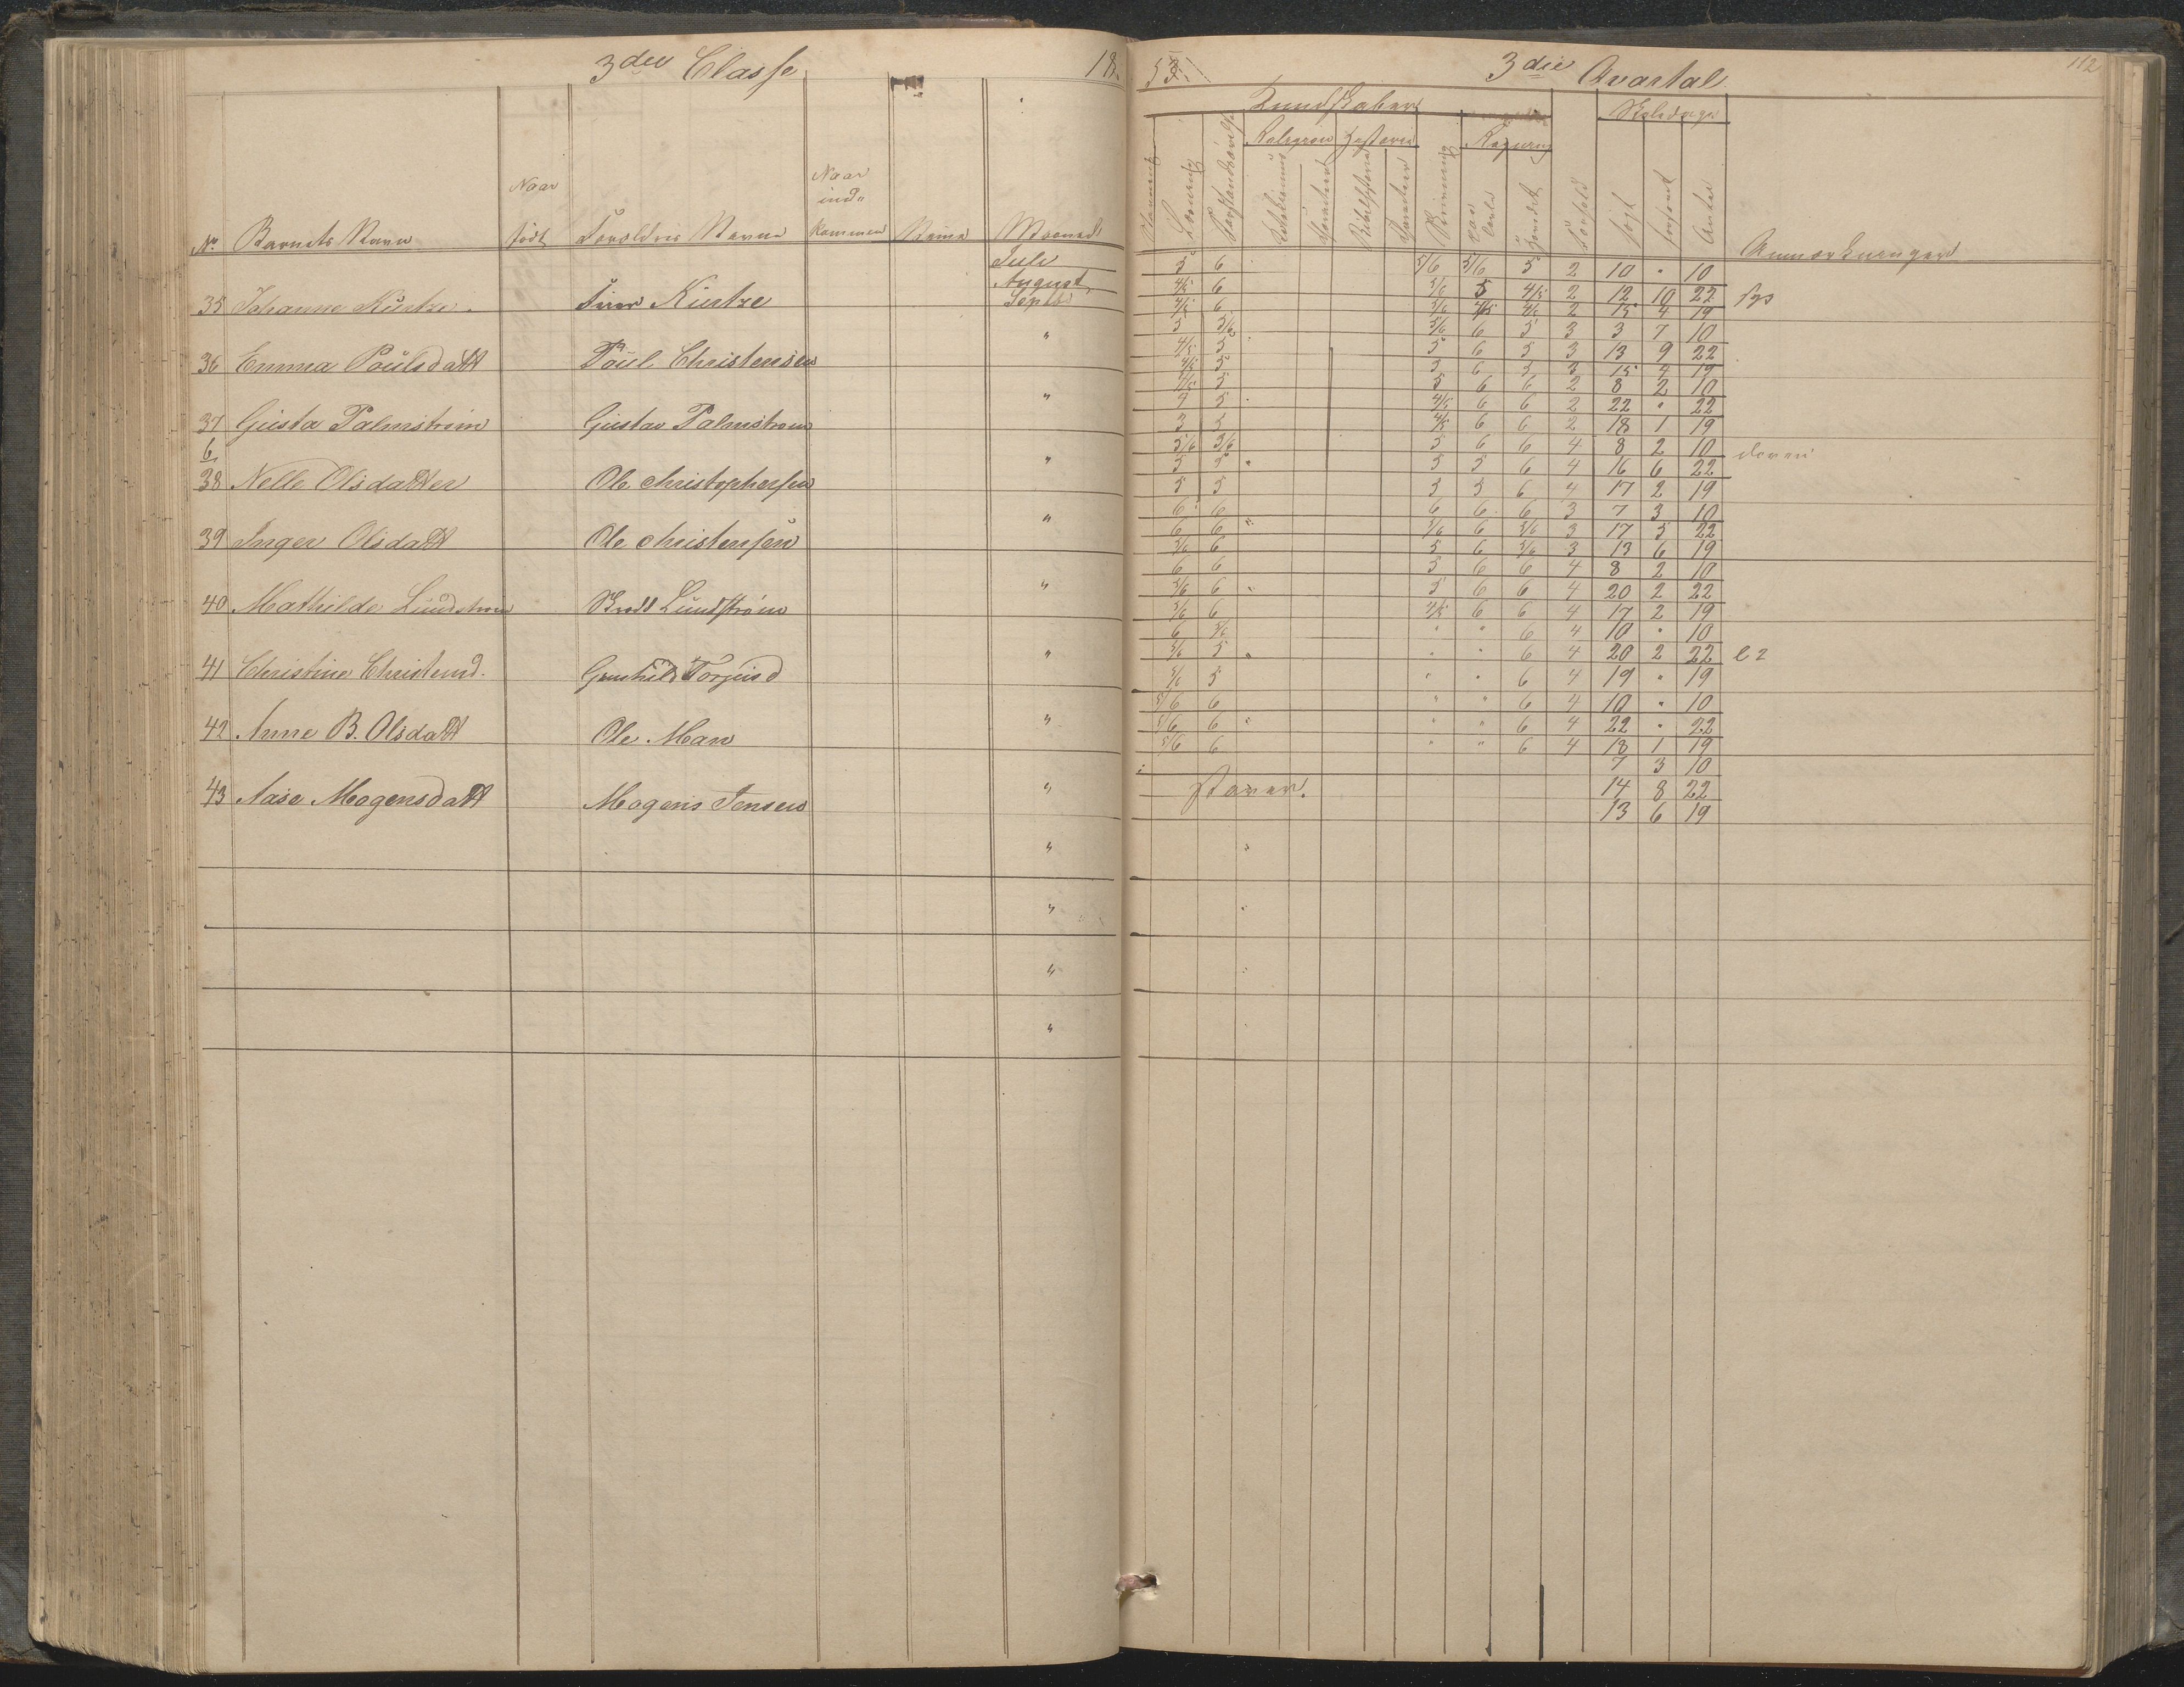 3die Classe 18
N° Barnets Navn Naar född Foreldres Navne Naar ind- kommen Maaned
Juli
August
35 Johanne Küntze. Küntze Septbr
36 Emma Poülsdatt Poul Christensen "
37 Gusta Palmstrøm Gustav Palmstrøm "
6
38 Nelle Olsdatter Ole Christophersen "
39 Inger Olsdatt Ole Christensen "
40 Mathilde Lundstrøm Lundstrøm "
41 Christine Christensd. Gunhild Torjusd "
42 Anne B. Olsdatt Ole Man "
43 Aase Mogensdatt Mogens Jensen "
"
"
"
"
3die Qvartal 112
Kundskaber Skoledage
Religion Historie Regning
Forhold søgt forsømt Antal Anmærkninger
5 6 5/6 5/6 5 2 10 " 10
4/5 6 5/6 5 4/5 2 12 10 22
4/5 6 5/6 4/5 4/5 2 15 4 19
5 5/6 5/6 6 5 3 3 7 10
4/5 5 5 6 5 3 13 9 22
4/5 5 5 6 5 3 15 4 19
4/5 5 5 6 6 2 8 2 10
5 4/5 6 6 2 22 " 22
5 5 4/5 6 6 2 18 1 19
5/6 5/6 5 6 6 4 8 2 10
5 5 5 5 6 4 16 6 22
5 5 5 5 6 4 17 2 19
6 6 6 6 6 3 7 3 10
6 6 5/6 6 5/6 3 17 5 22
5/6 6 5 6 5/6 3 13 6 19
6 6 5 6 6 4 8 2 10
5/6 6 5 6 6 4 20 2 22
5/6 6 4/5 6 6 4 17 2 19
6 5/6 " " 6 4 10 " 10
5/6 5 " " 6 4 20 2 22
5/6 5 " " 6 4 19 " 19
5/6 6 " " 6 4 10 " 10
5/6 6 " " 6 4 22 " 22
5/6 6 " " 6 4 18 1 19
7 3 10
Staver. 14 8 22
13 6 19